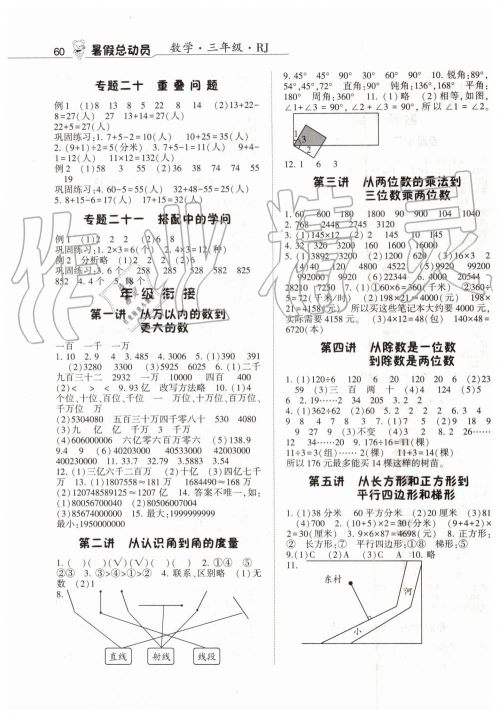 60 暑假总动员 数学·三年级·RJ
专题二十 重叠问题
例1 (1)8 13 8 5 22 8 14 (2)13+22-
8=27(人) 27 13+14=27(人)
22+5=27(人)
巩固练习:1. 7+5-2=10(人) 10+25=35(人)
2. (9+1)÷2=5(分米) 3. 7+5-1=11(人) 9+4-
1=12(人) 11×12=132(人)
例2 (1)58 3 55 (2)36 38 74 74 55
19
巩固练习:4. 60-5=55(人) 32+48-55=25(人)
5. 8+15-6=17(人) 17+15=32(人)
专题二十一 搭配中的学问
例1 (1)2 2 2 (2)6 8
巩固练习:1. 2×3=6(个) 2. 4×3=12(种)
例2 分析略 (1)2 2 2 (2)6
巩固练习:3. 6个 258 285 528 582 825
852 4. 4个 5. 18个
年级衔接
第一讲 从万以内的数到
更大的数
一百 一千 一万
1. 10 2. 9 4 3. 485 4. 3006 5. (1)390 391
(2)3280 3300 (3)5925 6025 6. (1)二千
九百三十二 2932 一万 10000 四百 400
(2)< > < 9. 93亿 改写方法略 10. (1)4
个位、十位、百位、千位 一 万位、十万位、百万位、
千万位 万
(2)5304080 五百三十万四千零八十 530 4080
(3)九 亿 亿 千万 3 亿
(4)606000006 六亿零六百万零六 (5)138.9
9.4 9 (6)40203000 45533000 42003000
400230000 11. 33.7 32.79 3.5883 3.54
12. (1)三亿六千二百万 (2)十亿 (3)四亿七千
万 13. (1)1807558≈181万 1684490≈168万
(2)120748589125≈1207亿 14. 答案不唯一,如:
(1)80056700040 (2)80506700004
(3)85674000000 15. 最大:1999999999
最小:1950000000
第二讲 从认识角到角的度量
1. ( ) ( )(√)(√) ( )(√) 2. ①④ ⑤
②③ 3. ③>④>①>② 4. 联系、区别略 (1)无
数 (2)1
8.
直线 射线 线段
9. 45° 45° 90° 30° 60° 90° 10. 锐角:89°,
54°,45°,72° 直角:90° 钝角:136°,168° 平角:
180° 周角:360° 11. (1)略 (2)相等,如图,
∠1+∠3=90°,∠2+∠3=90°,所以∠1=∠2。
1 3 2
12. 1 6 3
第三讲 从两位数的乘法到
三位数乘两位数
1. 60 600 180 1800 90 900 104 1040
2. 768 2448 2745 3120
3. (1)145×12 (2)2 145 10 145
4. 32 320 3200 160 1600 16000
5. (1)3892 3200 (2)1200 12 (3)16×3 2
(4)40 120 4800 4522 (5)9920 99200
992000 9920000 (6)22 7 6. 4000 20544
28210 7250 7. (1)①60×6=360(千米) ②360÷
5=72(千米/时) (2)198×21≈4000(元) 198×
21=4158(元), 所以买这些笔记本大约要4000元,
实际需要4158元。 (3)4×12=48(包) 140×48=
6720(本)
第四讲 从除数是一位数
到除数是两位数
1. (1)120÷6 120 6 20 120 20 6 (2)23
59 (3)三 百 两 十 (4)4 124 (5)5
6 2. 19……2 18……3 205 4. 2
4. (1)362÷62 (2)60 5 22 2 2 3. 4
9 8 4 7 8 3 7. (1)7 5 (2)9 18 9
9 27 9 (3)不变 (4)3 8. 26 ……11
12 34 ……20 9. 176÷16=11(棵)
11÷3=3(组)……2(棵) 11+3=14(棵)
所以176元最多能买14棵这样的树苗。
第五讲 从长方形和正方形到
平行四边形和梯形
1. (1)38分米 60平方分米 (2)20厘米 (3)81
(4)700 2. (10+5)×2=30(分米) (9+4+2)×
2=30(厘米) 3. 9×6×87=4698(元) 8. 正方形:
② 长方形:⑦ 平行四边形:①⑧ 梯形:⑤
9. (1)C (2)A (3)C A 10. 略
11.
东村
小
河